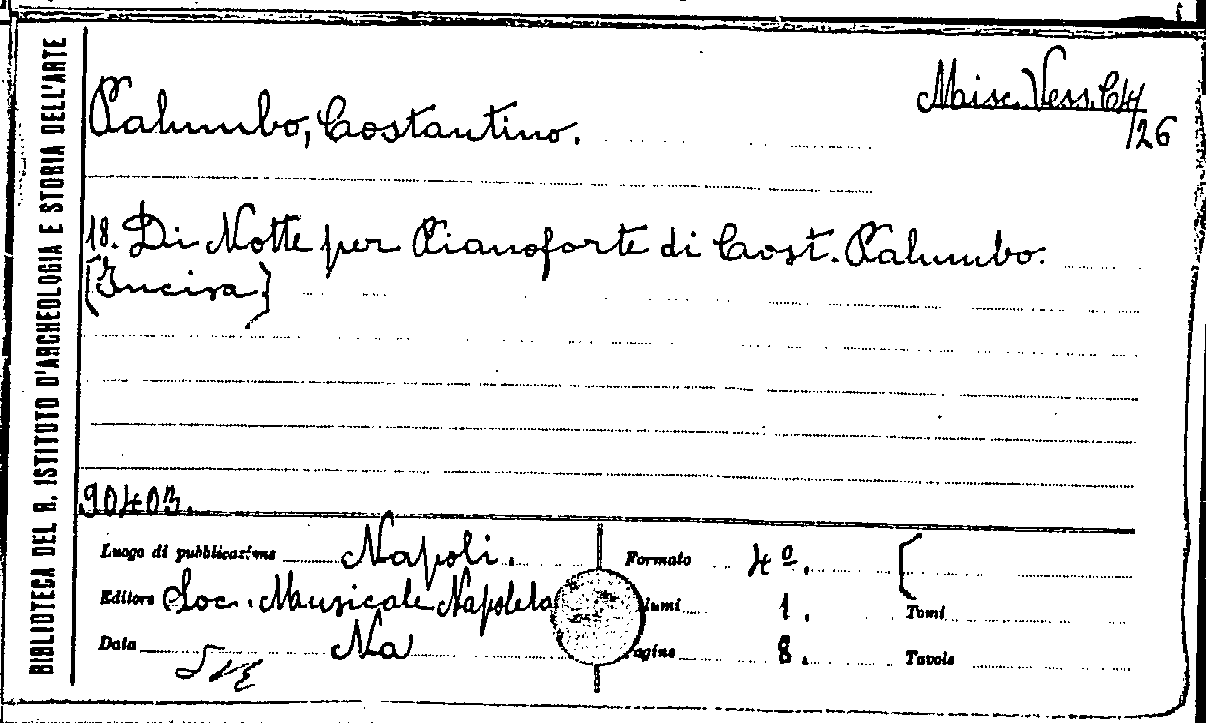 BIBLIOTECA DEL R. ISTITUTO D'ARCHEOLOGIA E STORIA DELL'ARTE
Misc. Vess. C14/26
Palumbo, Costantino.
18. Di Notte per Pianoforte di Cost. Palumbo.
(Incisa)
90403.
Luogo di pubblicazione Napoli. Formato 4º.
Editore Soc. Musicale Napoleta lumi 1. Tomi
Data Na agine 8. Tavole